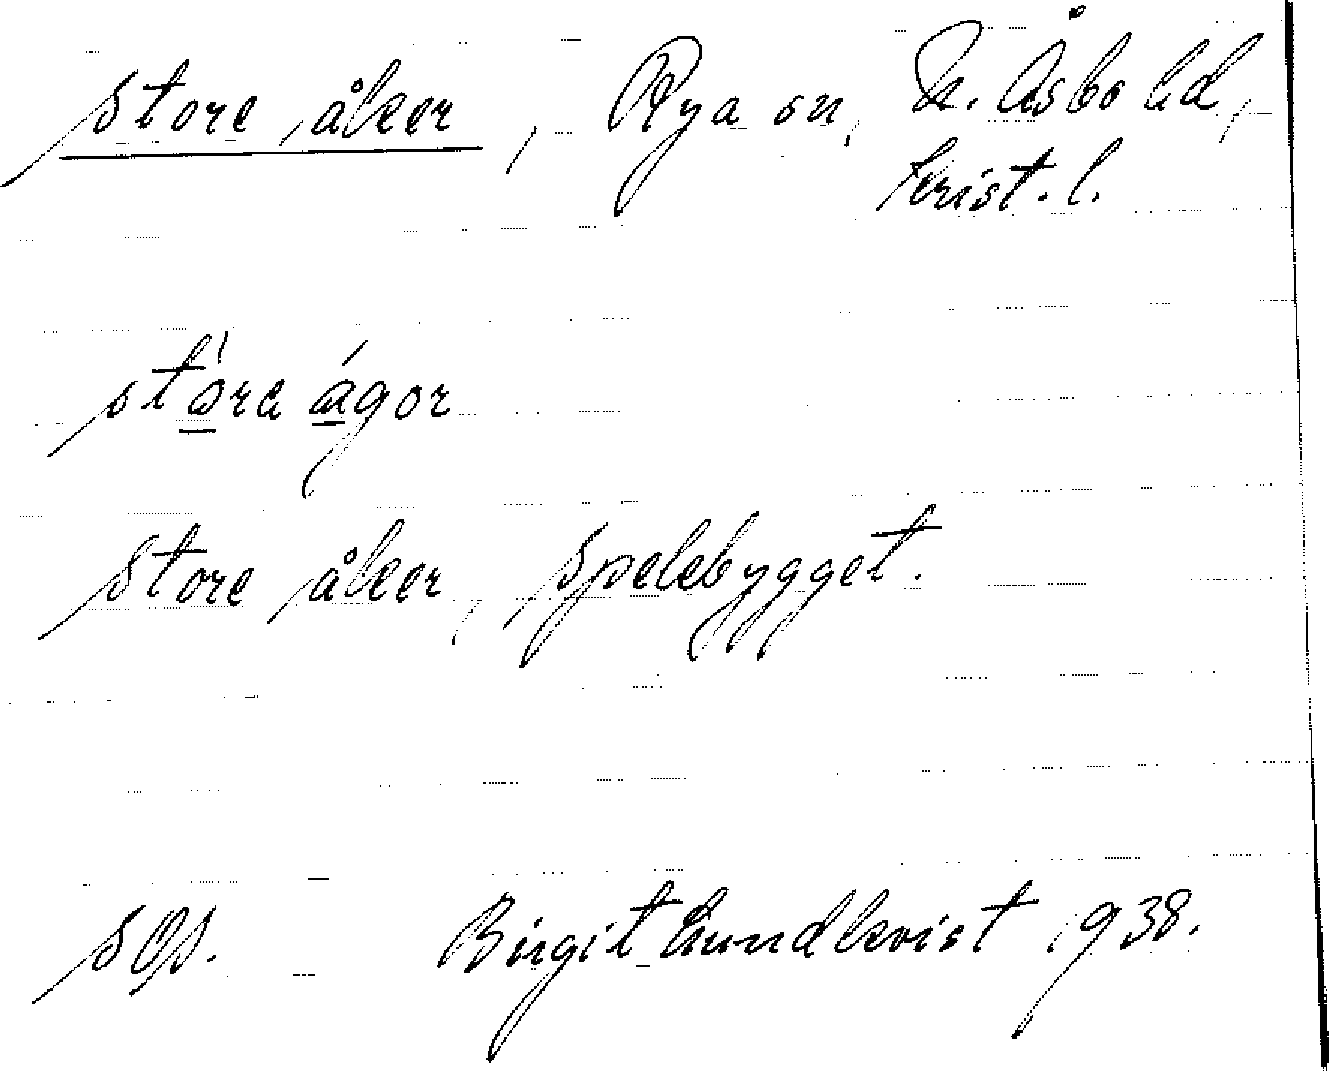 Store åker, Rya sn, N. Åsbo hd,
Krist. l.
stóra ágor
Store åker, Spelebygget.
Birgit Lundkvist 1938.